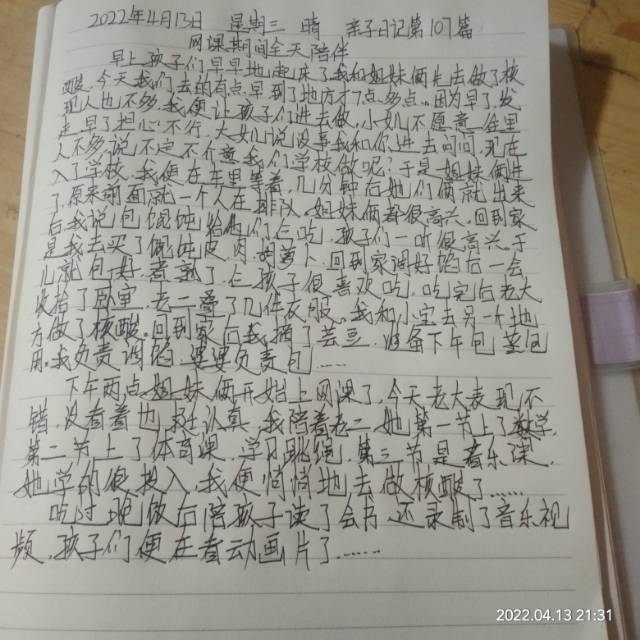 2022年4月13日 星期三 晴 亲子日记第107篇
网课期间全天陪伴
早上孩子们早早地起来了我和姐妹俩先去做了核
酸,今天我们去的有点早到了地方才7点多点。因为早了,发
现人也不多我便让孩子们进去做,小女儿不愿意,在里
走早了担心不行,大女儿说没事我和你进去问问,现在
人不多,说不定不介意我们学校做呢?于是姐妹俩进
入了学校,我便在车里等着,几分钟后她们俩就出来
了,原来前面就一个人在排队。姐妹俩都很高兴,回到家
后我说包馄饨给他们仨吃,孩子们一听很高兴,于
是我去买了馄饨皮,肉,胡萝卜,回到家调好馅后一会
儿就包好,煮熟了,仨孩子很喜欢吃,吃完后老大
收拾了卧室,老二叠了几件衣服。我和小宝去另一个地
方做了核酸。回到家后我摘了芸豆,准备下午包蒸包
用。我负责调馅,婆婆负责包……
下午两点姐妹俩开始上网课了,今天老大表现不
错,没看着也挺认真,我陪着老二她第一节上了数学,
第二节上了体育课,学习跳绳,第三节是音乐课,
她学的很投入,我便悄悄地去做核酸了……
吃过晚饭后陪孩子读了会书,还录制了音乐视
频,孩子们便在看动画片了……
2022.04.13 21:31